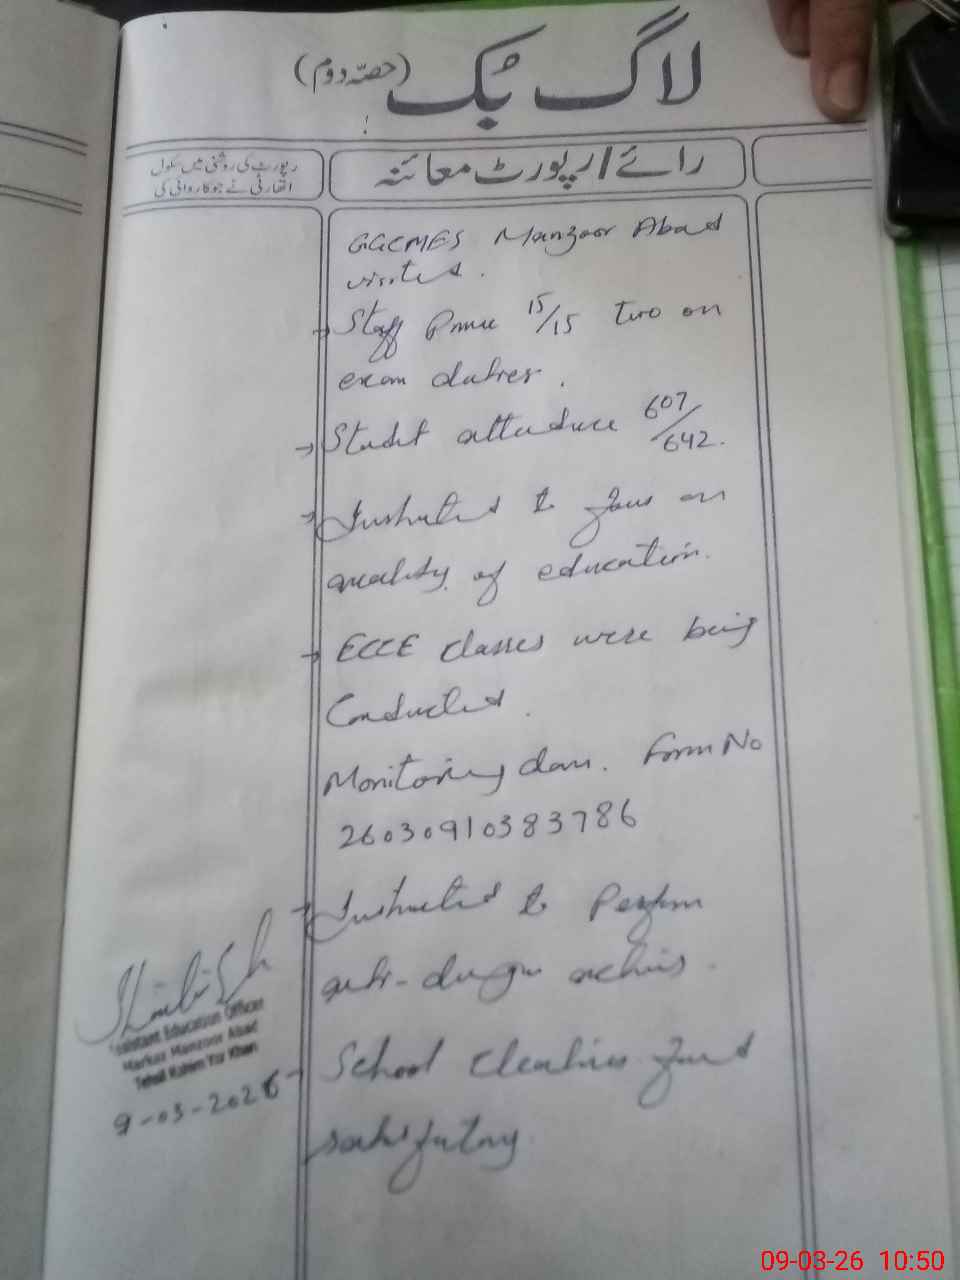 لاگ بُک (حصّہ دوم)
رپورٹ کی روشنی میں سکول
اتھارٹی نے جو کاروائی کی
رائے/رپورٹ معائنہ
GGCMES Manzoor Abad
visited.
→ Staff 15/15 two on
exam duties.
→ Student attendance 607/642.
→ Instructed to focus on
quality of education.
→ ECCE classes were being
Conducted.
Monitoring done. Form No
26030910383786
→ Instructed to Perform
anti-dengue activities.
- School cleanliness found
satisfactory.
Assistant Education Officer
Markaz Manzoor Abad
Tehsil Rahim Yar Khan
9-03-2026
09-03-26 10:50